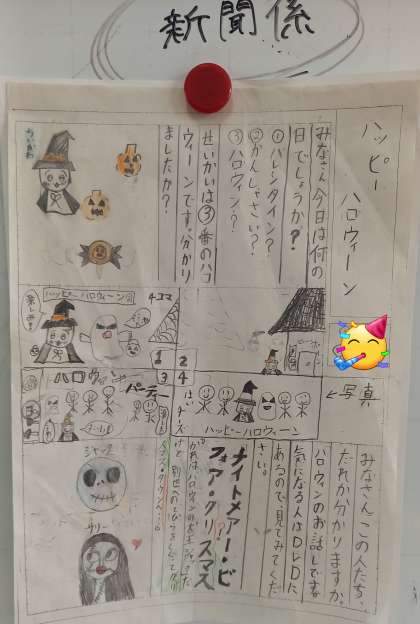 新聞係
ハッピー
ハロウィーン
みなさん今日は何の
日でしょうか?
①バレンタイン?
②かんしゃさい??
③ハロウィン?
せいかいは③番のハロ
ウィーンです。分かり
ましたか?
ちぃかわ
ハッピーハロウィーン
4コマ
楽しみ
1
2
3
4
ハロウィン
パーティー
はい
チーズ
ハッピーハロウィーン
←写真
みなさん、この人たち、
だれか分かりますか。
ハロウィンのお話しです。
気になる人はDVDに
あるので、見てみてくだ
さい。
ナイトメアー・ビ
フォア・クリスマス
ジャック
サリー